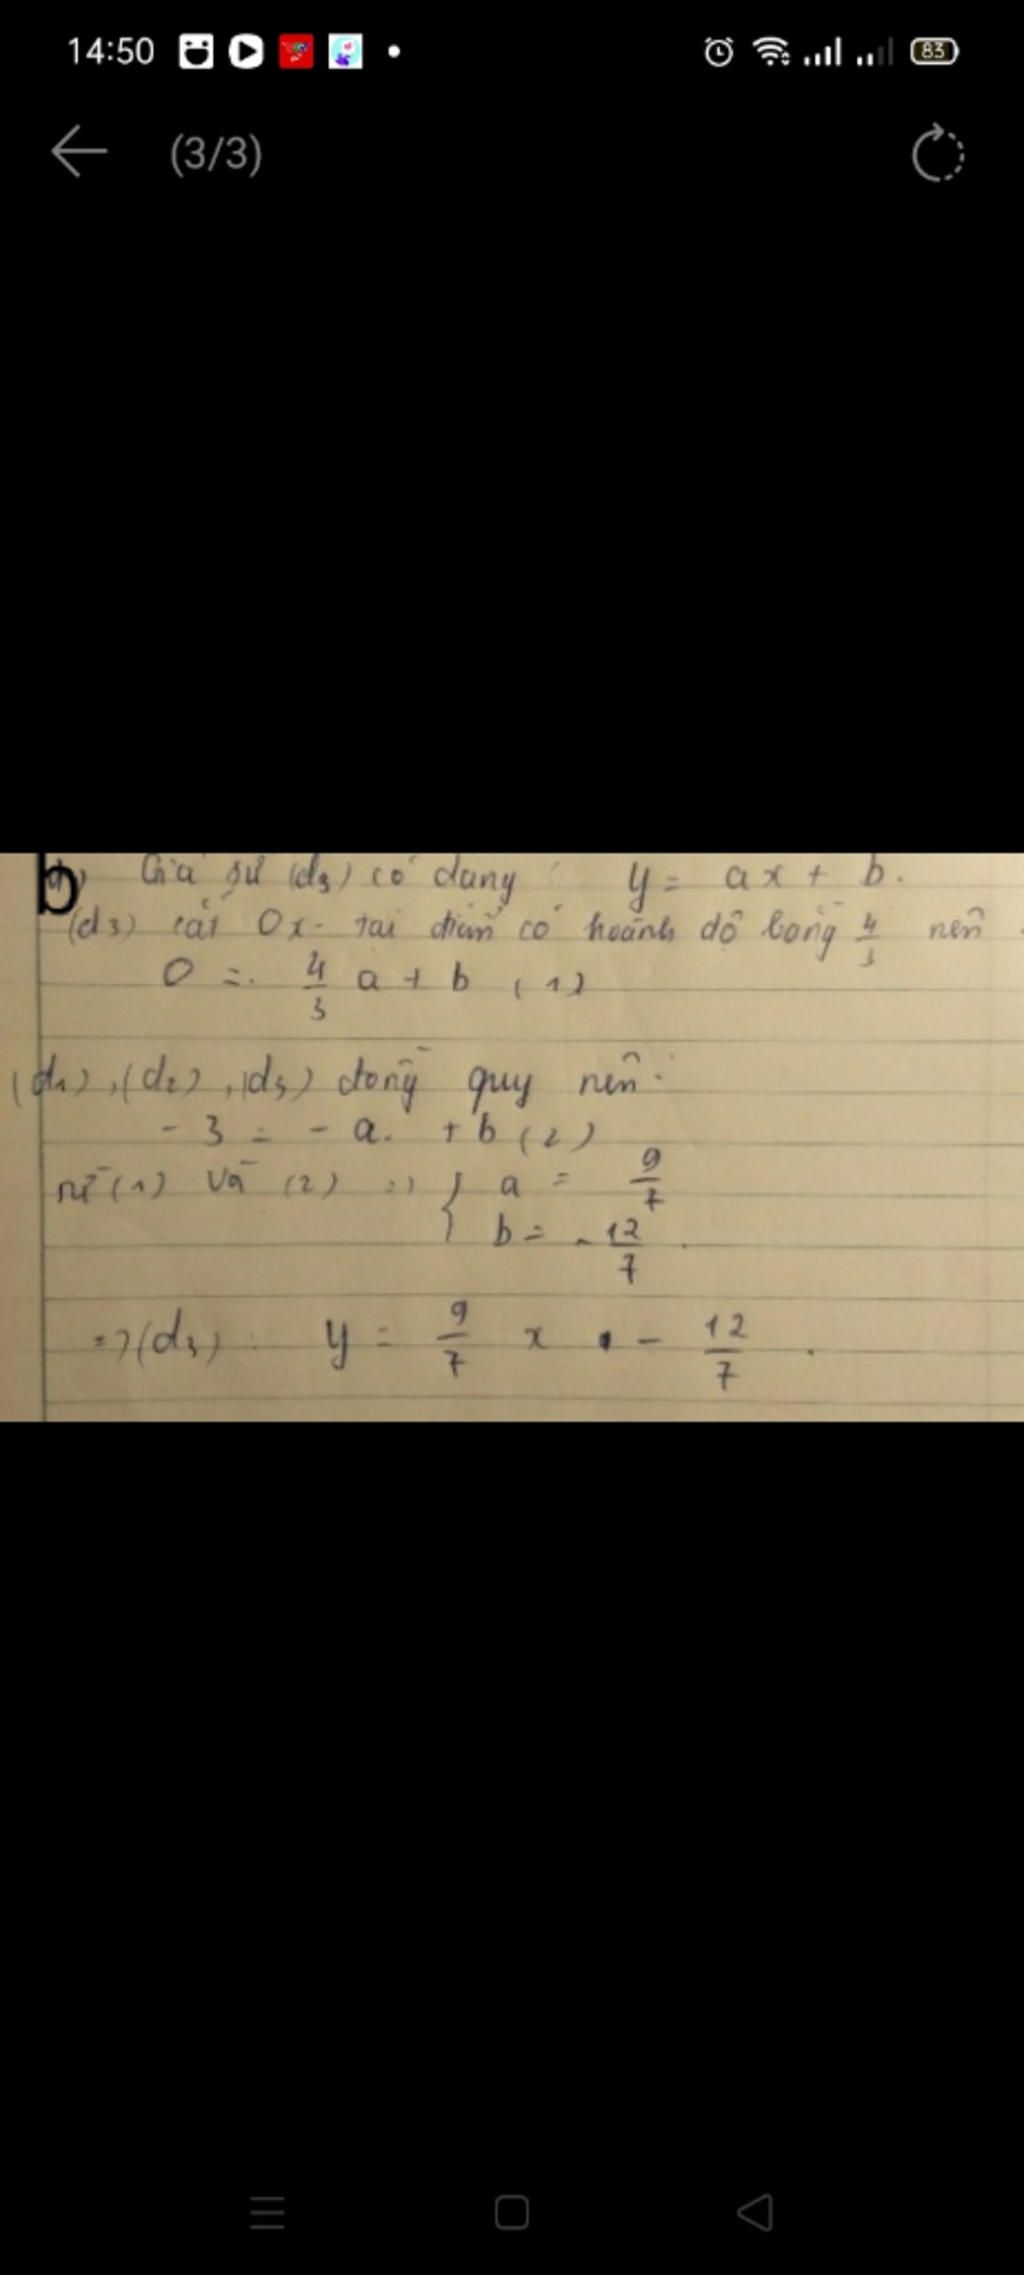 14:50
83
(3/3)
b) Giả sử (d3) có dạng : y = ax + b.
(d3) cắt Ox tại điểm có hoành độ bằng 4/3 nên
0 = 4/3 a + b (1)
(d1), (d2), (d3) đồng quy nên:
- 3 = - a + b (2)
từ (1) và (2) => { a = 9/7
b = - 12/7.
=> (d3) : y = 9/7 x - 12/7.